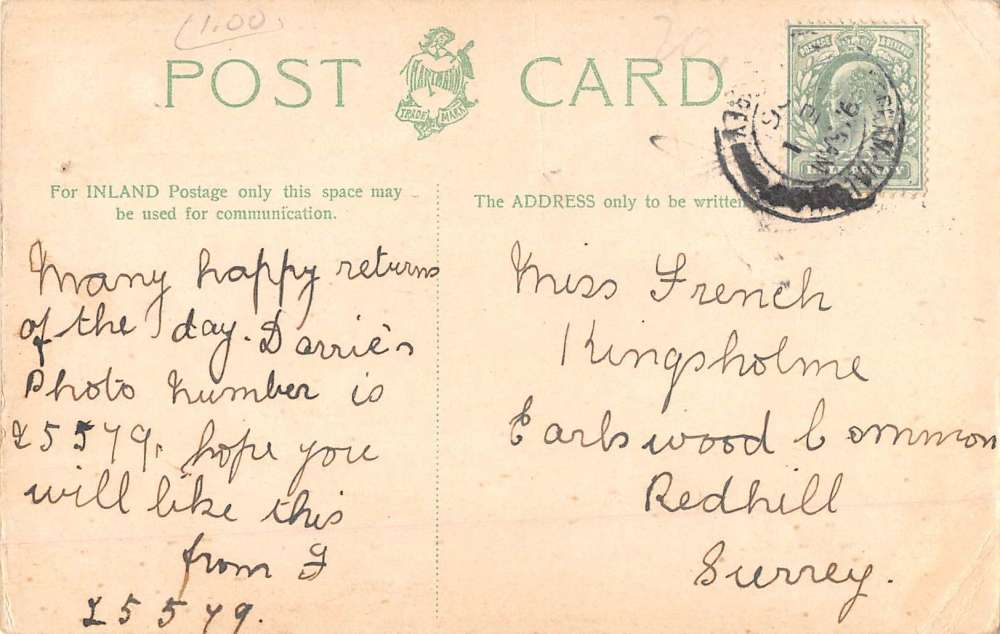 (1.00)
POST CARD
HARTMANN
TRADE MARK
POSTAGE & REVENUE
For INLAND Postage only this space may
be used for communication.
The ADDRESS only to be written
Many happy returns
of the day. Dorrie's
Photo Number is
L5579, hope you
will like this
from F
L5579.
Miss French
Kingsholme
Earlswood Common
Redhill
Surrey.